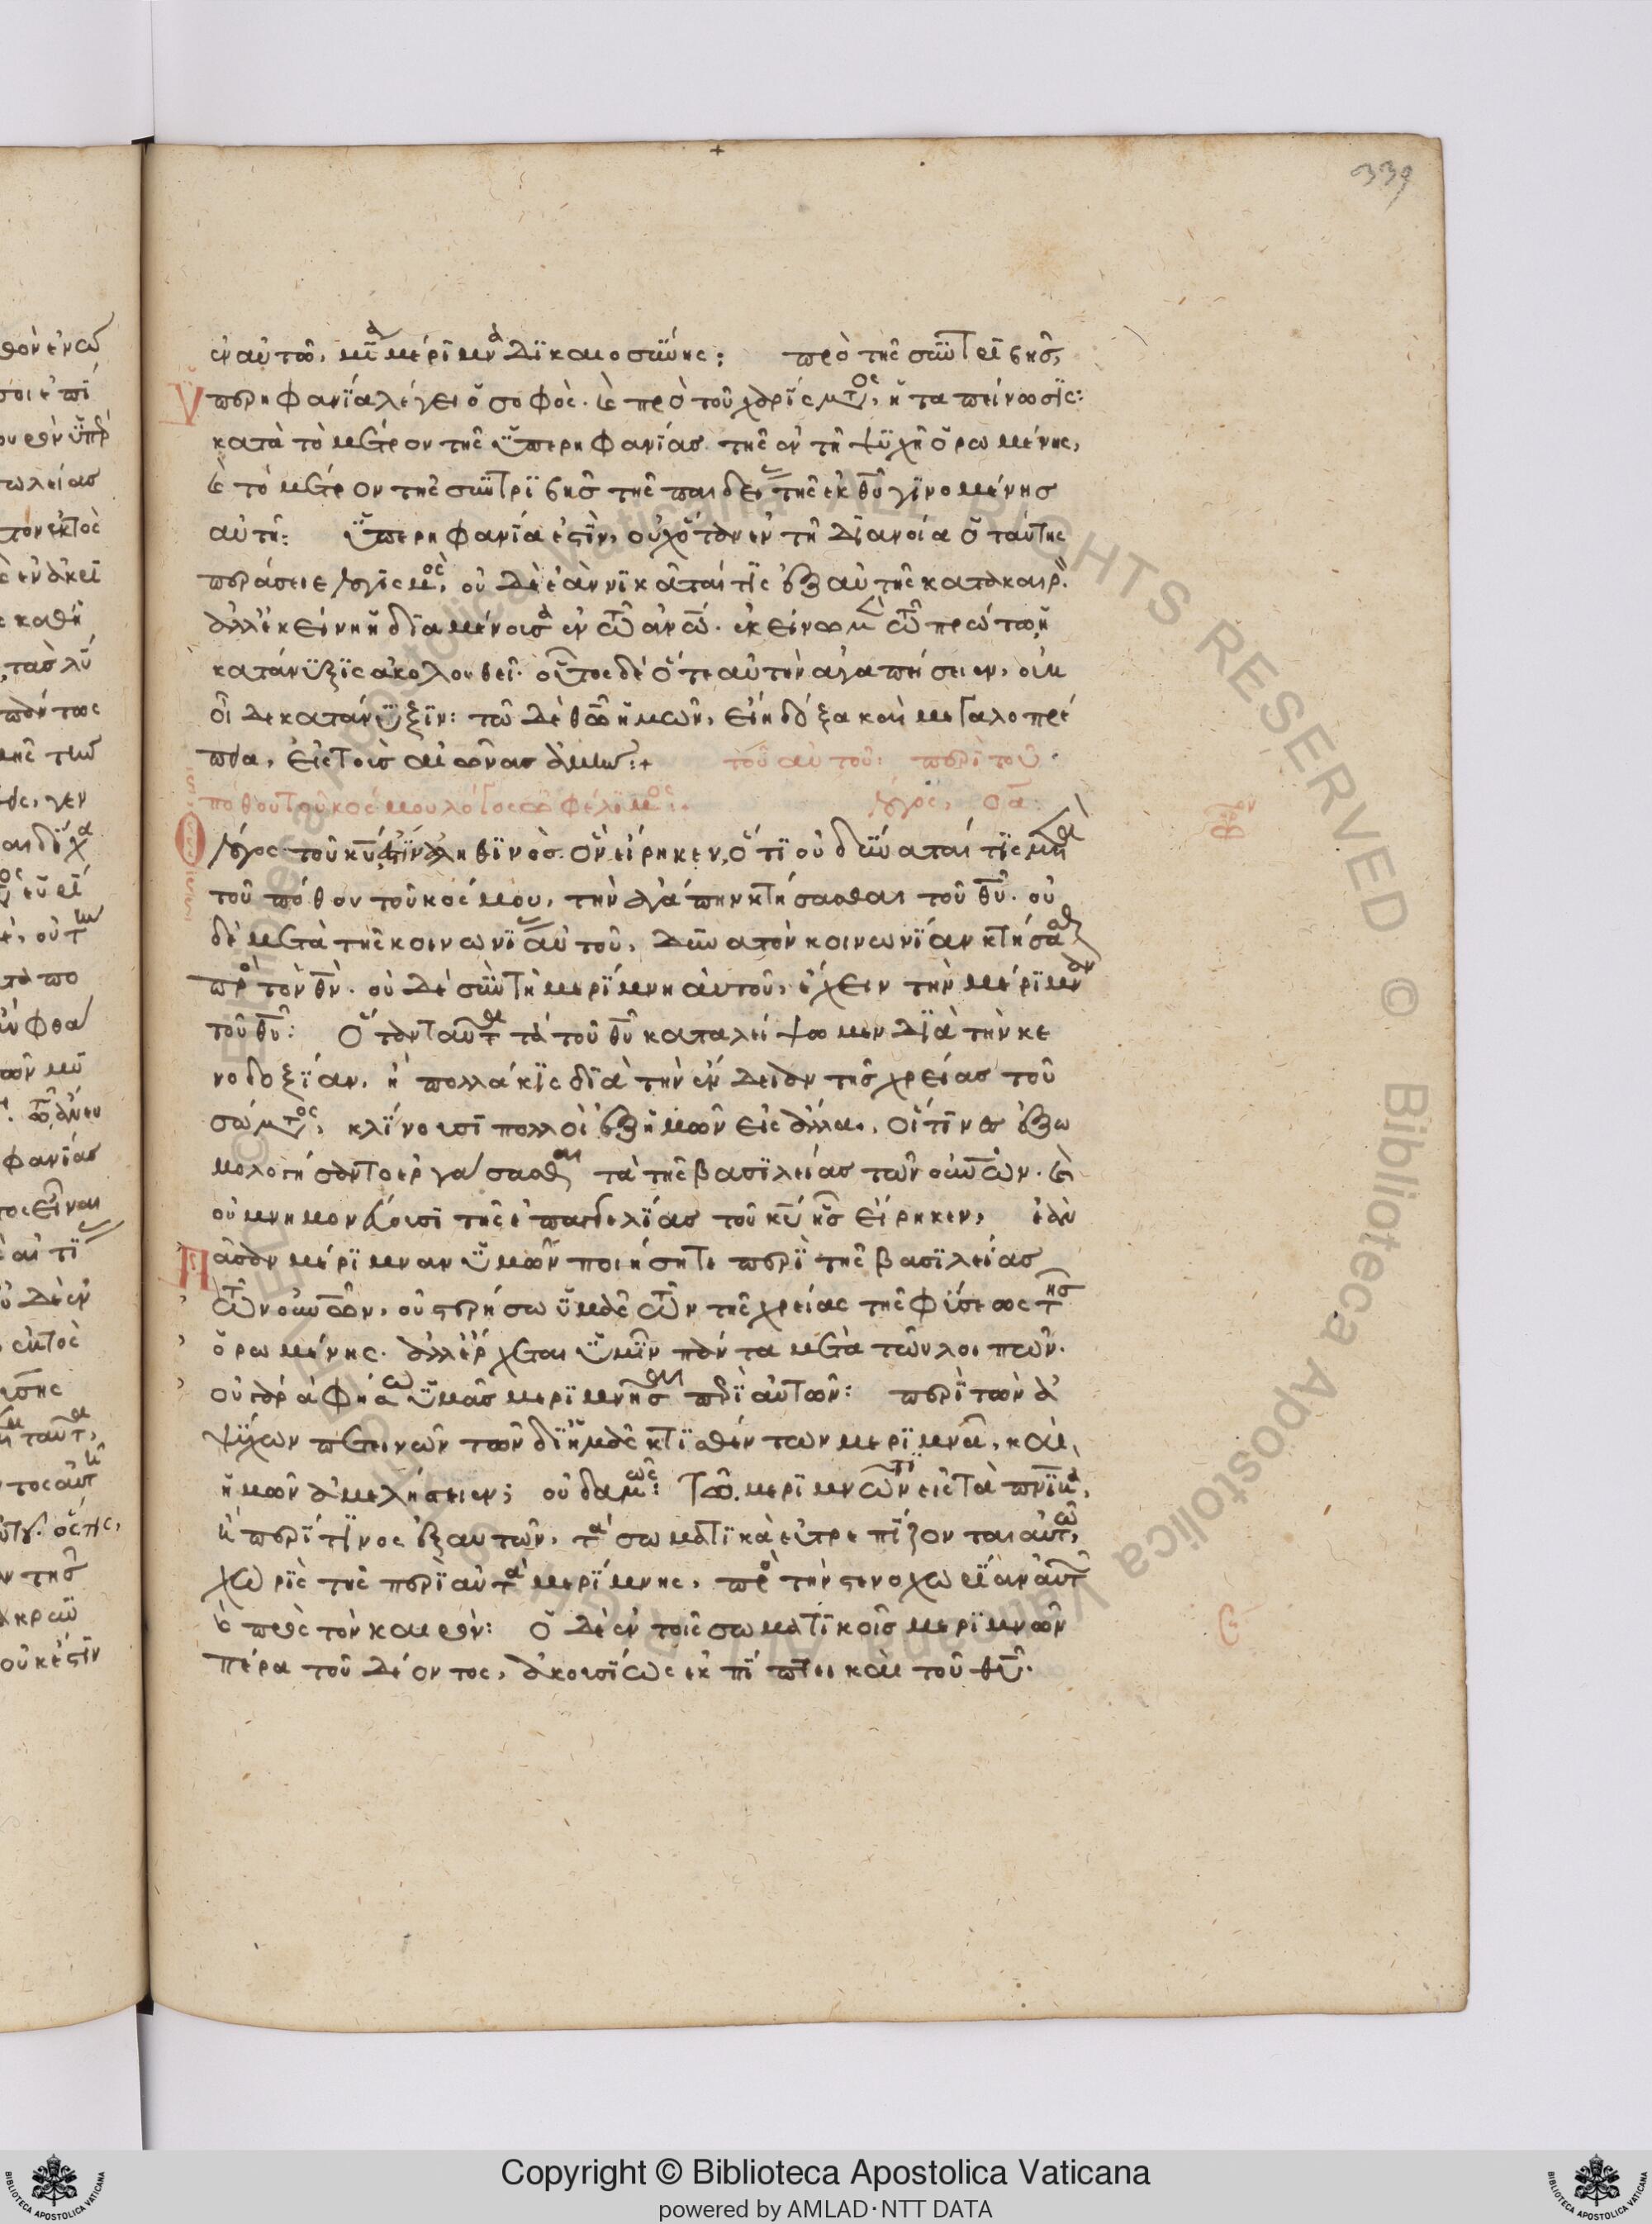 339
ἐν αὐτῶ, μία μέριμνα δικαιοσύνης: πρὸ τῆς συντριβῆς,
ὑπερηφανία λέγει ὁ σοφός. καὶ πρὸ τοῦ χαρίσματος, ἡ ταπείνωσις:
κατὰ τὸ μέτρον τῆς ὑπερηφανίας τῆς ἐν τῆ ψυχῆ ὁρωμένης,
καὶ τὸ μέτρον τῆς συντριβῆς τῆς παιδείας τῆς ἐκ θυ γινομένης
αὐτῆ: ὑπερηφανία ἐστὶν, οὐχ ὅταν ἐν τῆ διανοία ὁ ταύτης
περάσει λογισμὸς, οὐδὲ ἐὰν νικᾶται τὶς ἐξ αὐτῆς κατὰ καιρὸν
ἀλλ' ἐκείνη ἡ διαμένουσα ἐν τῶ ἀνω. ἐκείνω μὲν τῶ πρώτω, ἡ
κατάνυξις ἀκολουθεῖ. οὗτος δὲ ὅτε αὐτὴν ἀγαπήσειεν, οὐκ
οἶδε κατάνυξιν: τῶ δὲ θω ἡμῶν, εἴη δόξα καὶ μεγαλοπρέ
πεια, εἰς τοὺς αἰῶνας ἀμήν:+ τοῦ αὐτοῦ: περὶ τοῦ
πόθου τοῦ κόσμου λόγος ὠφέλιμος: λόγος, οα:
Ο λόγος τοῦ κυ ἐστὶν ἀληθινὸς ὃν εἴρηκεν, ὅτι οὐ δύναταί τις μετὰ
τοῦ πόθου τοῦ κόσμου, τὴν ἀγάπην κτήσασθαι τοῦ θυ. οὐ
δὲ μετὰ τῆς κοινωνίας αὐτοῦ, δυνατὸν κοινωνίαν κτήσασθαι
πρὸς τὸν θν. οὐδὲ σὺν τῆ μερίμνη αὐτοῦ, ἔχειν τὴν μέριμναν
τοῦ θυ: ὅταν γὰρ τὰ τοῦ θυ καταλείψωμεν διὰ τὴν κε
νοδοξίαν, ἢ πολλάκις διὰ τὴν ἔνδειαν τῆς χρείας τοῦ
σώματος, κλίνουσι πολλοὶ ἐξ ἡμῶν εἰς ἄλλα, οἵτινες ἐξω
μολόγησαν τὸ ἐργάσασθαι τὰ τῆς βασιλείας τῶν οὐνῶν. καὶ
οὐ μνημονεύουσι τῆς ἐπαγγελίας τοῦ κυ ἧς εἴρηκεν, ἐὰν
Πᾶσαν μέριμναν ὑμῶν ποιήσητε περὶ τῆς βασιλείας
τῶν οὐνῶν, οὐ στερήσω ὑμᾶς τῶν τῆς χρείας τῆς φύσεως τῆς
ὁρωμένης. ἀλλ' ἔρχεται ὑμῖν πάντα μετὰ τῶν λοιπῶν.
οὐ γὰρ ἀφήσω ὑμᾶς μεριμνῆσαι περὶ αὐτῶν: περὶ τῶν ἀ
ψύχων πετεινῶν τῶν δι' ἡμᾶς κτισθέντων μεριμνᾶ, καὶ
ἡμῶν ἀμελήσειεν; οὐδαμῶς: τῶ μεριμνῶντι εἰς τὰ πνικὰ,
ἢ περί τινος ἐξ αυτῶν, τὰ σωματικὰ εὐτρεπίζονται αὐτῶ,
χωρὶς τῆς περὶ αὐτὰ μερίμνης, πρὸς τὴν στενοχωρίαν αὐτῶν
καὶ πρὸς τὸν καιρόν: ὁ δὲ ἐν τοῖς σωματικοῖς μεριμνῶν
πέρα τοῦ δέοντος, ἀκουσίως ἐκπίπτει καὶ τοῦ θυ.
Copyright © Biblioteca Apostolica Vaticana
powered by AMLAD·NTT DATA